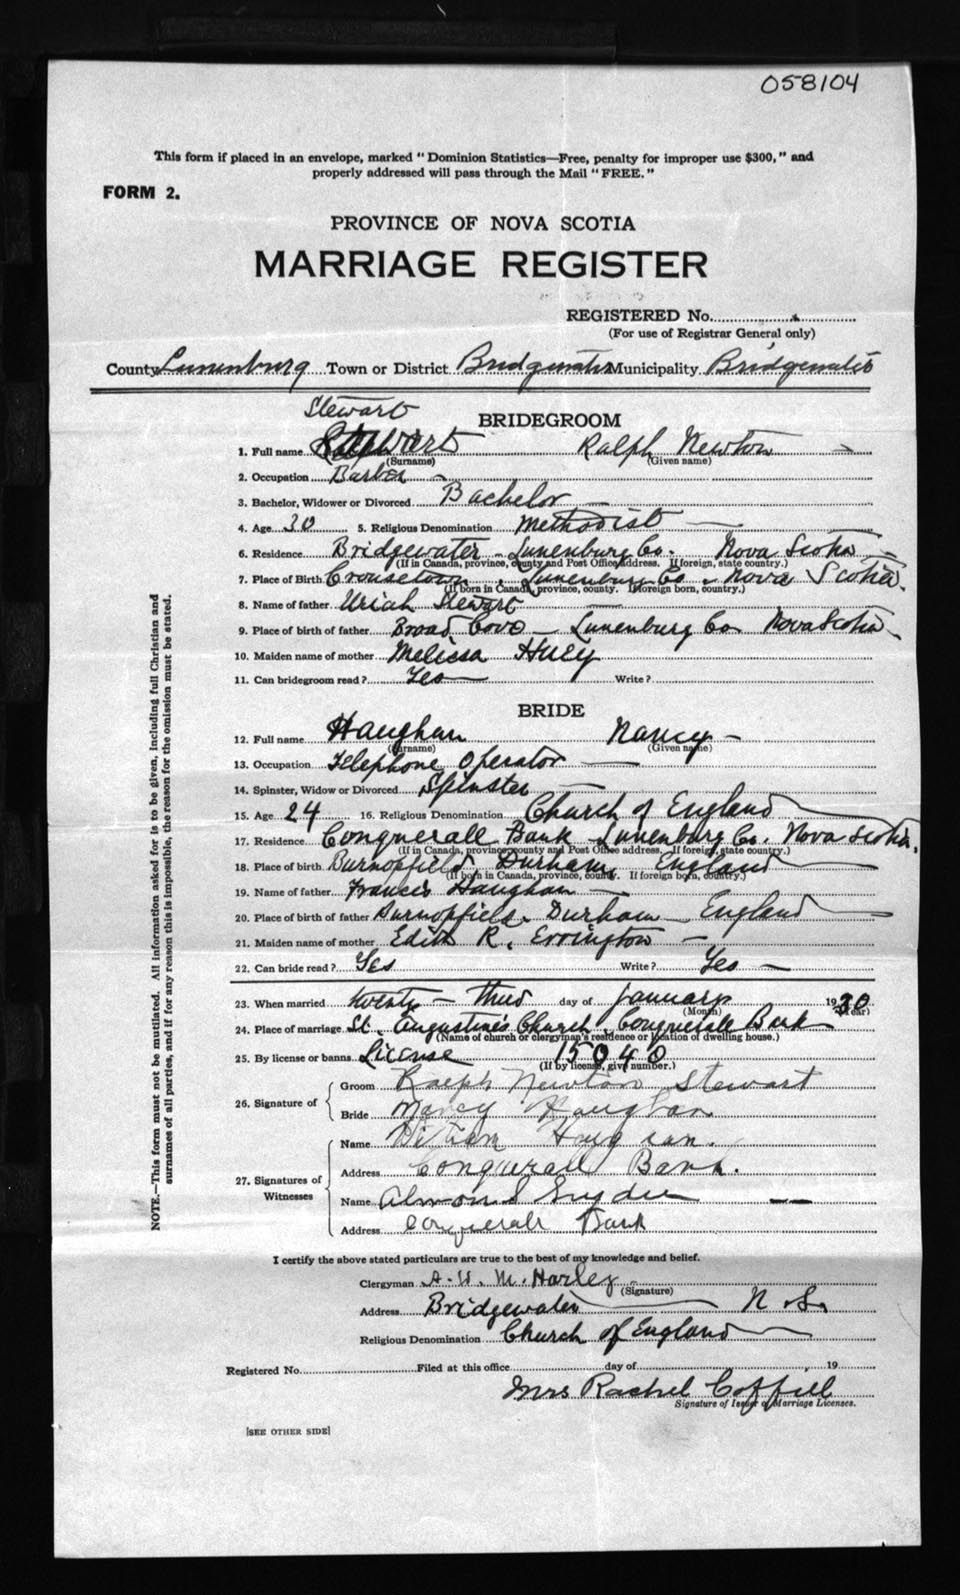 058104
This form if placed in an envelope, marked "Dominion Statistics—Free, penalty for improper use $300," and
properly addressed will pass through the Mail "FREE."
FORM 2.
PROVINCE OF NOVA SCOTIA
MARRIAGE REGISTER
REGISTERED No.
(For use of Registrar General only)
County Lunenburg Town or District Bridgewater Municipality Bridgewater
Stewart
BRIDEGROOM
1. Full name Stewart Ralph Newton
(Surname) (Given name)
2. Occupation Barber
3. Bachelor, Widower or Divorced Bachelor
4. Age 30 5. Religious Denomination Methodist
6. Residence Bridgewater - Lunenburg Co. Nova Scotia
(If in Canada, province, county and Post Office address. If foreign, state country.)
7. Place of Birth Crousetown, Lunenburg Co - Nova Scotia.
(If born in Canada, province, county. If foreign born, country.)
8. Name of father Uriah Stewart
9. Place of birth of father Broad Cove - Lunenburg Co Nova Scotia
10. Maiden name of mother Melissa Huey
11. Can bridegroom read? Yes Write?
BRIDE
12. Full name Haughan Nancy -
(Surname) (Given name)
13. Occupation Telephone Operator
14. Spinster, Widow or Divorced Spinster
15. Age 24 16. Religious Denomination Church of England
17. Residence Conquerall Bank Lunenburg Co. Nova Scotia.
(If in Canada, province, county and Post Office address. If foreign, state country.)
18. Place of birth Burnopfield Durham England
(If born in Canada, province, county. If foreign born, country.)
19. Name of father Francis Haughan
20. Place of birth of father Burnopfield. Durham England
21. Maiden name of mother Edith R. Errington
22. Can bride read? Yes Write? Yes
23. When married twenty - third day of January 1930
(Month) (Year)
24. Place of marriage St. Augustine's Church, Conquerall Bank
(Name of church or clergyman's residence or location of dwelling house.)
25. By license or banns License 15040
(If by license, give number.)
26. Signature of
Groom Ralph Newton Stewart
Bride Nancy Haughan
27. Signatures of Witnesses
Name William Haughan.
Address Conquerall Bank.
Name Almond Snyder
Address Conquerall Bank
I certify the above stated particulars are true to the best of my knowledge and belief.
Clergyman A. W. M. Harley
(Signature)
Address Bridgewater N.S.
Religious Denomination Church of England
Registered No. Filed at this office day of 19
Mrs Rachel Coffill
Signature of Issuer of Marriage Licenses.
[SEE OTHER SIDE]
NOTE.—This form must not be mutilated. All information asked for is to be given, including full Christian and
surnames of all parties, and if for any reason this is impossible, the reason for the omission must be stated.